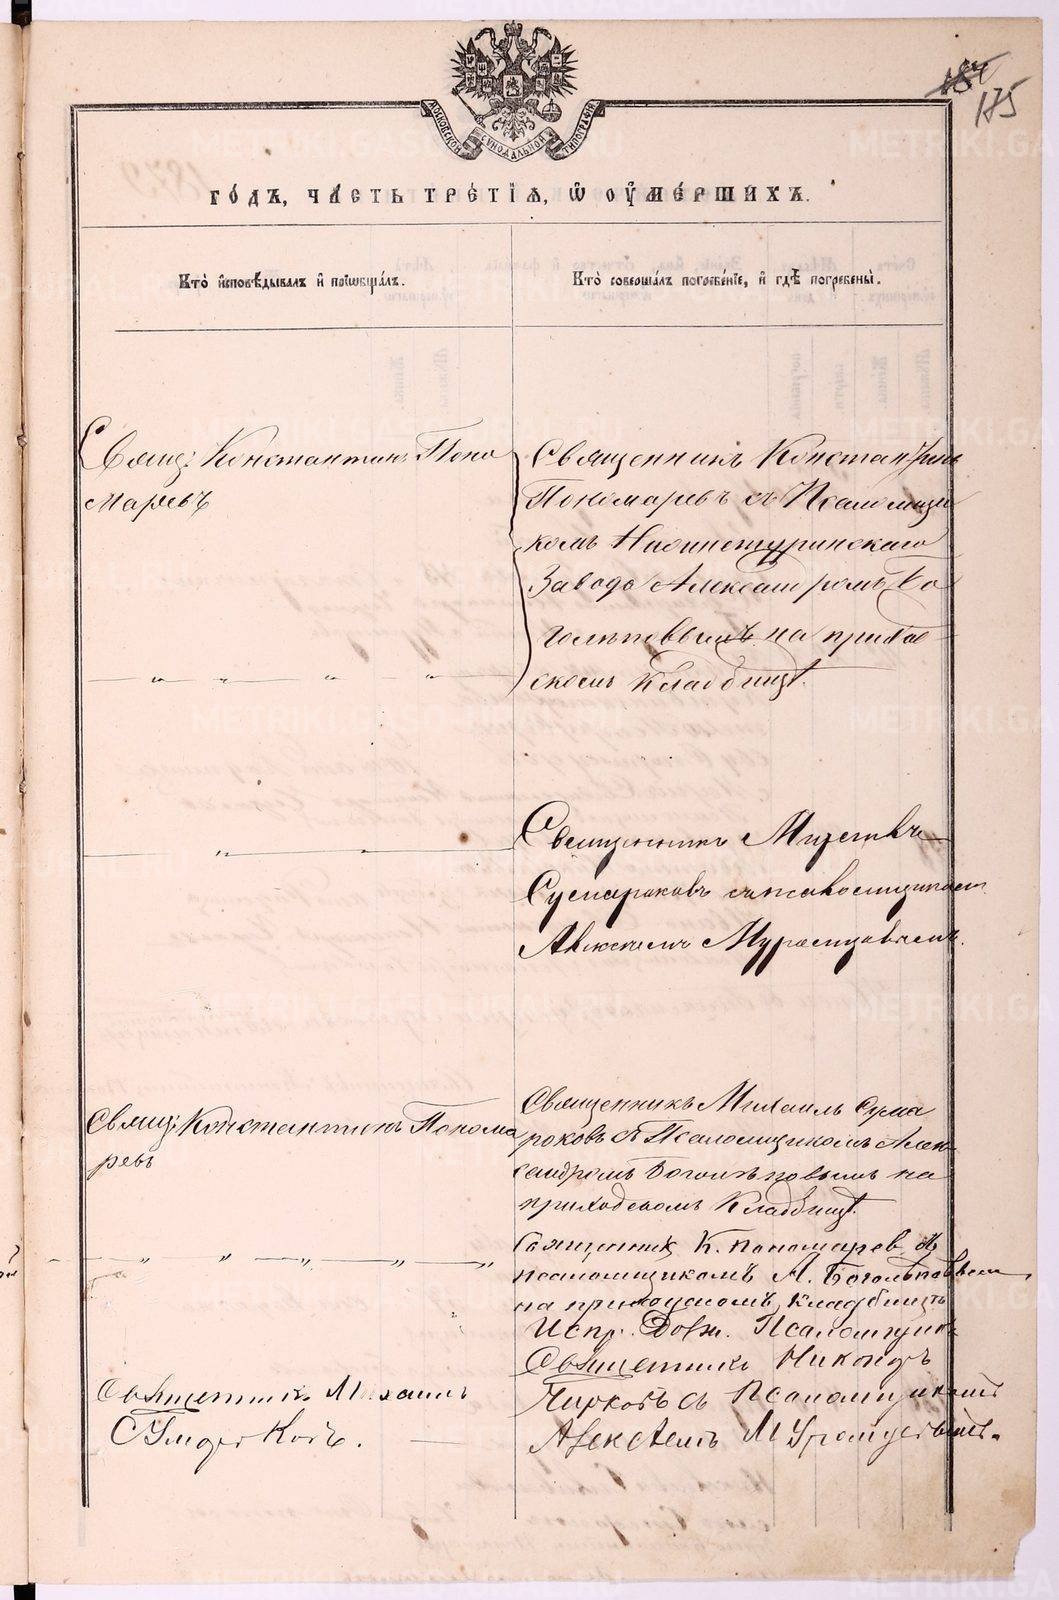 184
175
МОСКОВСКОЙ СѴНОДАЛЬНОЙ ТИПОГРАФІИ
ГОДЪ, ЧАСТЬ ТРЕТІЯ, Ѡ ОУМЕРШИХЪ.
Кто исповѣдывалъ и пріобщалъ.
Кто совершалъ погребеніе, и гдѣ погребены.
Свящ: Константинъ Поно
маревъ
Священникъ Константинъ
Пономаревъ съ Псаломщи
комъ Нижнетуринскаго
Завода Александромъ Бо
голѣповымъ на приход
скомъ Кладбищѣ.
Священникъ
Сумароковъ
Алексѣемъ Мурамцовымъ.
Свящ: Константинъ Понома
ревъ
Священникъ Михаилъ Сума
роковъ съ Псаломщикомъ Алек
сандромъ Боголѣповымъ на
приходскомъ Кладбищѣ.
Священник К. Пономарев съ
псаломщикомъ А. Боголѣповым
на приходском кладбищѣ
Испр. Долж. Псаломщик
Священникъ Михаилъ
Сумароковъ.
Священникъ Никондръ
Пирковъ с Псаломщикомъ
Алексѣемъ Мурамцовымъ.
METRIKI.GASO-URAL.RU